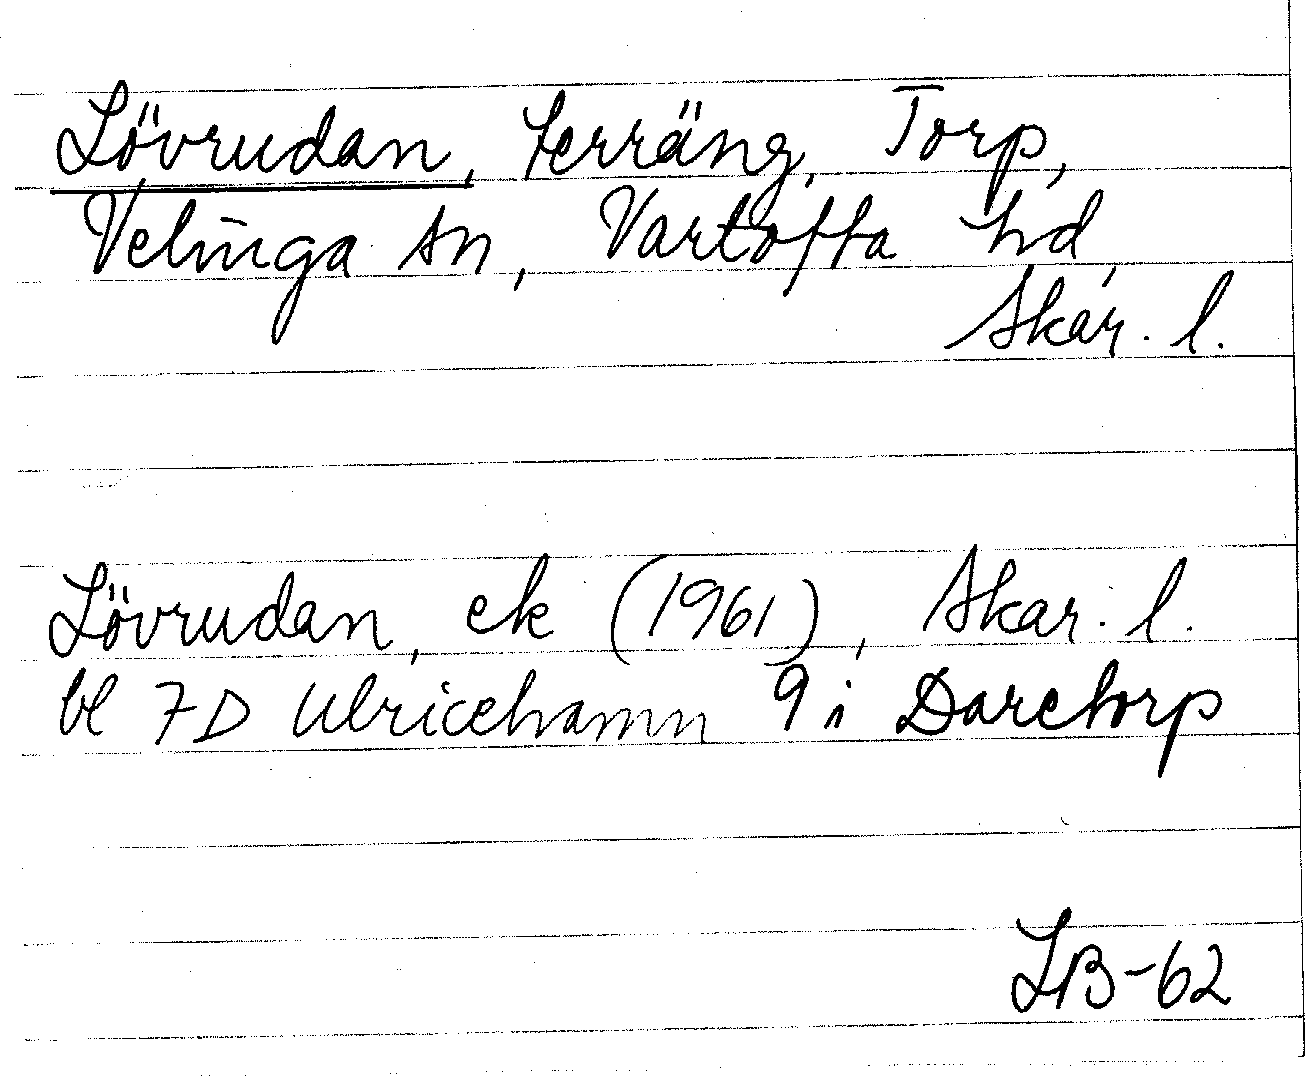 Lövrudan, terräng, Torp,
Velinga sn, Vartofta hd,
Skar. l.
Lövrudan, ek (1961), Skar. l.
bl 7D Ulricehamn 9 i Daretorp
LB-62